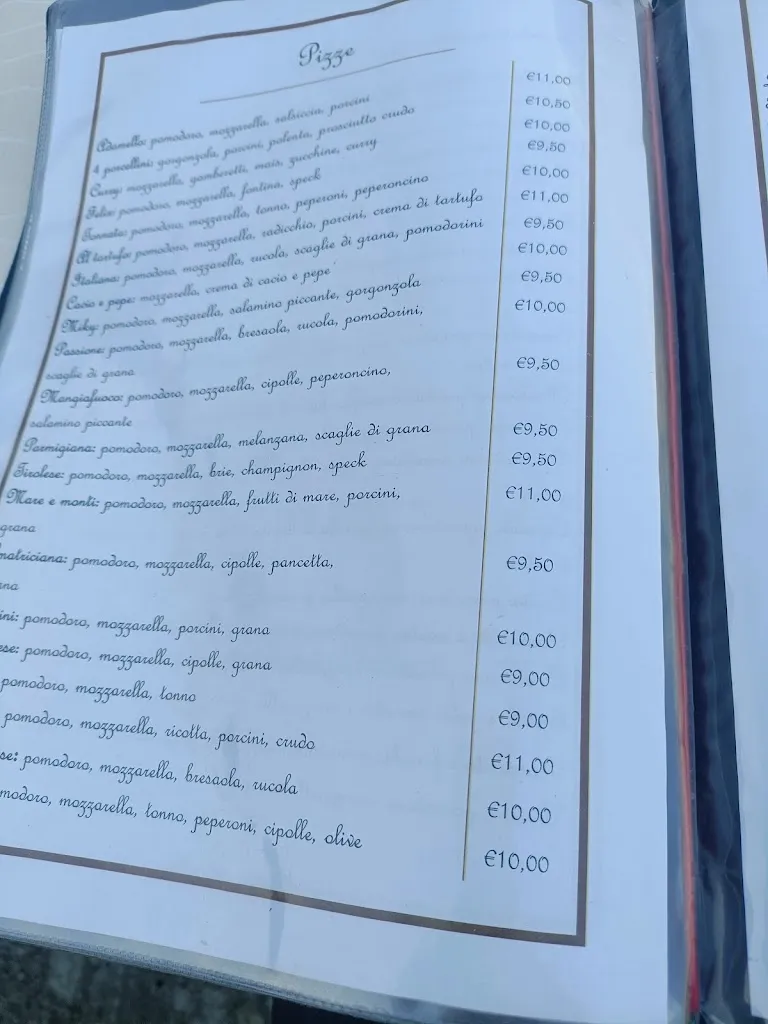 Pizze
Adamello: pomodoro, mozzarella, salsiccia, porcini €11,00
4 porcellini: gorgonzola, porcini, polenta, prosciutto crudo €10,50
Curry: mozzarella, gamberetti, mais, zucchine, curry €10,00
Felix: pomodoro, mozzarella, fontina, speck €9,50
Tonnata: pomodoro, mozzarella, tonno, peperoni, peperoncino €10,00
Al tartufo: pomodoro, mozzarella, radicchio, porcini, crema di tartufo €11,00
Italiana: pomodoro, mozzarella, rucola, scaglie di grana, pomodorini €9,50
Cacio e pepe: mozzarella, crema di cacio e pepe €10,00
Miky: pomodoro, mozzarella, salamino piccante, gorgonzola €9,50
Passione: pomodoro, mozzarella, bresaola, rucola, pomodorini, €10,00
scaglie di grana
Mangiafuoco: pomodoro, mozzarella, cipolle, peperoncino, €9,50
salamino piccante
Parmigiana: pomodoro, mozzarella, melanzana, scaglie di grana €9,50
Tirolese: pomodoro, mozzarella, brie, champignon, speck €9,50
Mare e monti: pomodoro, mozzarella, frutti di mare, porcini, €11,00
grana
matriciana: pomodoro, mozzarella, cipolle, pancetta, €9,50
ana
ini: pomodoro, mozzarella, porcini, grana €10,00
ese: pomodoro, mozzarella, cipolle, grana €9,00
pomodoro, mozzarella, tonno €9,00
pomodoro, mozzarella, ricotta, porcini, crudo €11,00
se: pomodoro, mozzarella, bresaola, rucola €10,00
modoro, mozzarella, tonno, peperoni, cipolle, olive €10,00